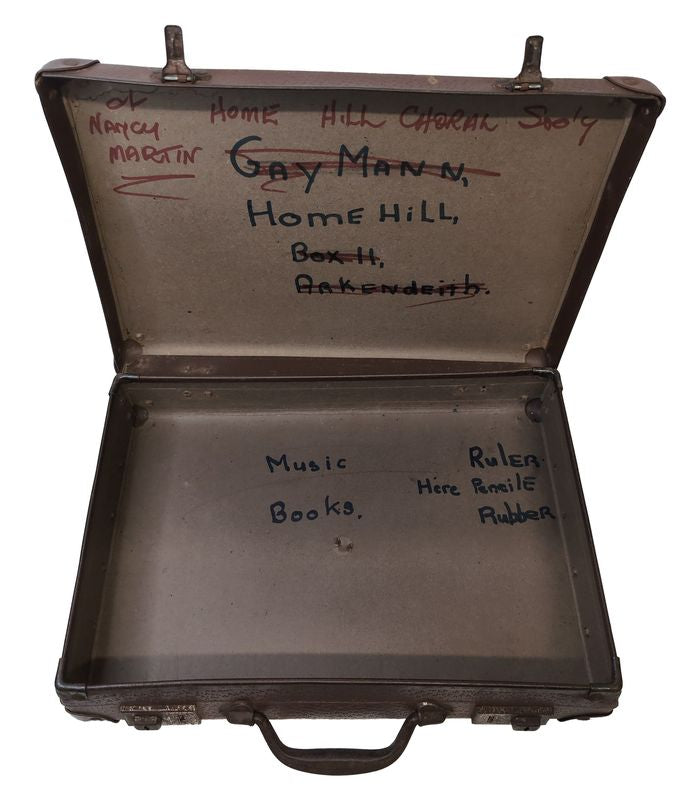 at HOME HILL CHORAL Soc'y
NANCY
MARTIN
GAY MANN,
HOME HiLL,
Box 11,
ARKENdEiTh.
Music
Books.
RuLER.
Here Pencile
RubbER